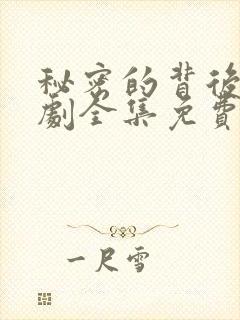 秘密的背後
劇全集免費
一尺雪